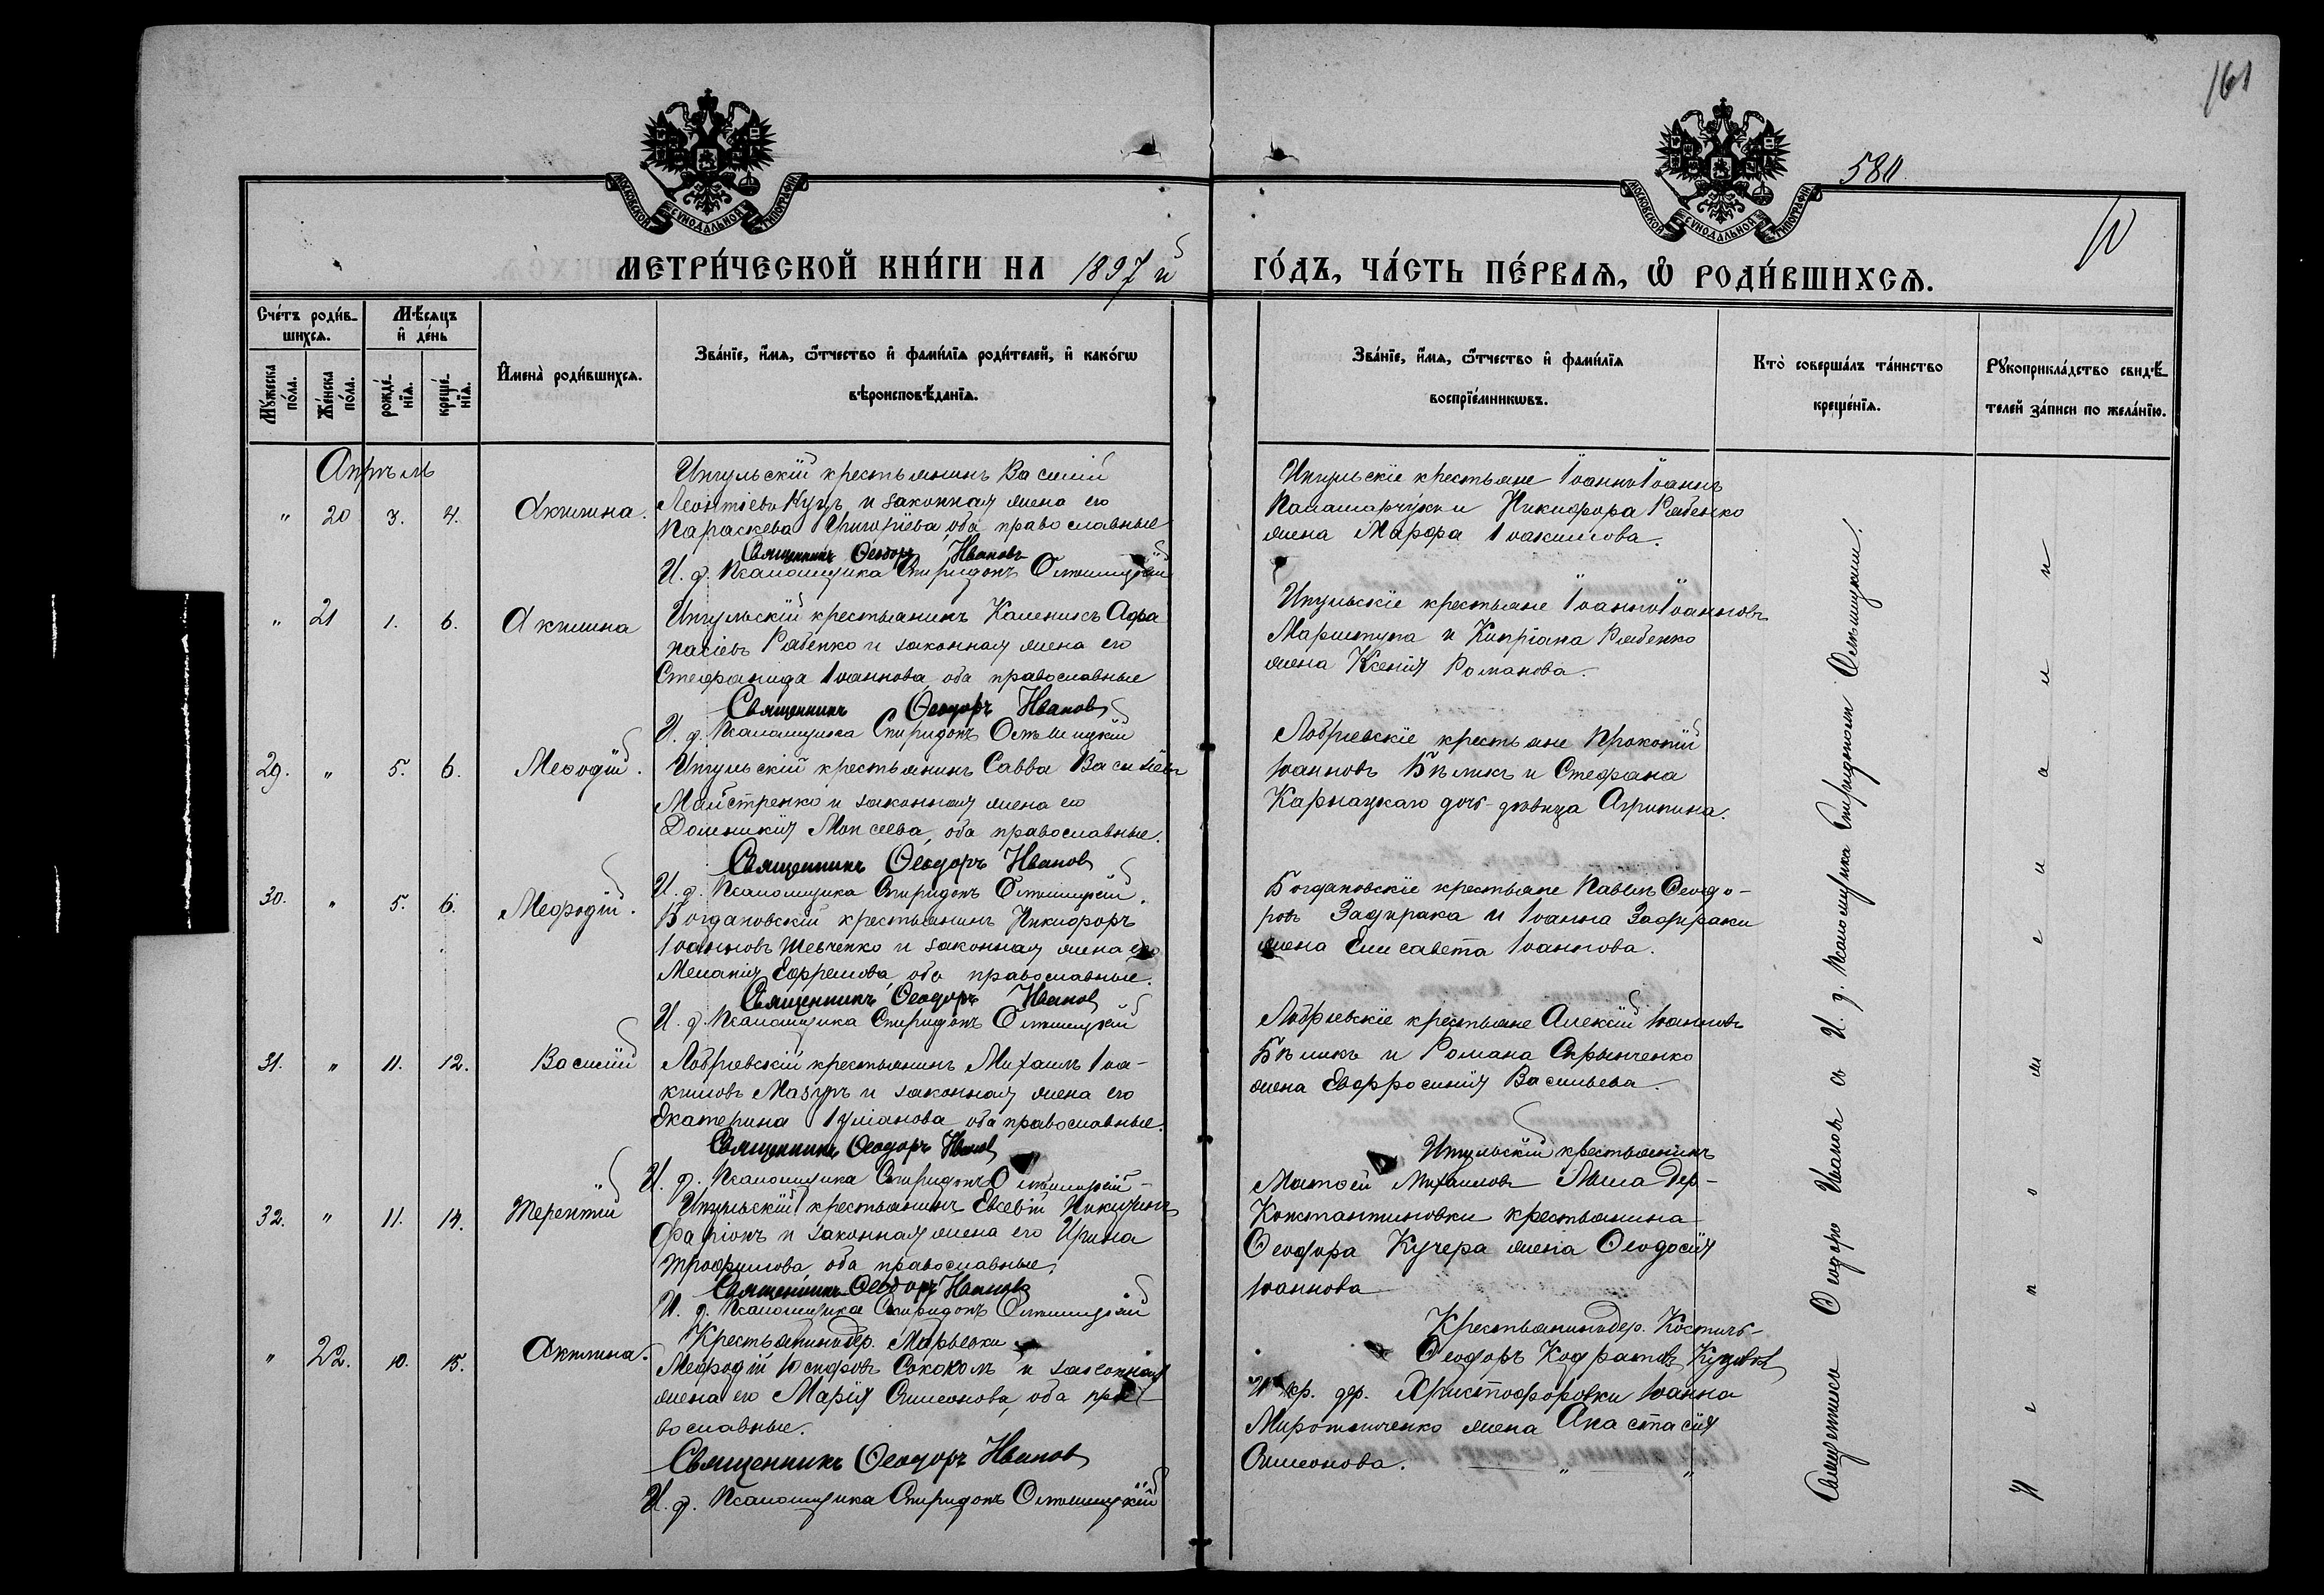 161
580
МОСКОВСКОЙ СУНОДАЛЬНОЙ ТИПОГРАФІИ
МОСКОВСКОЙ СУНОДАЛЬНОЙ ТИПОГРАФІИ
МЕТРИ́ЧЕСКОЙ КНИ́ГИ НА 1897 й
ГО́ДЪ, ЧА́СТЬ ПЕ́РВАѦ, Ѡ҆ РОДИ́ВШИХСѦ.
Счетъ роди́вшихсѧ.
Мѣ́сѧцъ и҆ де́нь
Му́жеска по́ла.
Же́нска по́ла.
рожде́нїѧ.
креще́нїѧ.
И҆мена̀ роди́вшихсѧ.
Зва́нїе, и҆́мѧ, ѻ҆́тчество и҆ фами́лїѧ роди́телей, и҆ како́гѡ
вѣроисповѣ́данїѧ.
Зва́нїе, и҆́мѧ, ѻ҆́тчество и҆ фами́лїѧ
воспрїе́мникѡвъ.
Кто̀ соверша́лъ та́инство
креще́нїѧ.
Рꙋкоприкла́дство свидѣ́-
телей за́писи по жела́нїю.
Апрѣль
" 20 3. 4. Акилина.
Ингульскій крестьянинъ Василій
Леонтіевъ Куцъ и законная жена его
Параскева Григоріева, оба православные
Священникъ Ѳеодоръ Ивановъ
И. д. Псаломщика Спиридонъ
Ингульскіе крестьяне Іоаннъ Іоанновъ
Паламарчукъ и Никифора Рябенко
жена Марфа Іоакимова.
" 21 1. 6. Акилина
Ингульскій крестьянинъ Каленикъ Афа
насіевъ Рябенко и законная жена его
Стефанида Іоаннова, оба православные
Священникъ Ѳеодоръ Ивановъ
И. д. Псаломщика Спиридонъ
Ингульскіе крестьяне Іоаннъ Іоанновъ
и Кипріана Рябенко
жена Ксенія Романова.
29. " 5. 6. Меѳодій.
Ингульскій крестьянинъ Савва Василіевъ
Майстренко и законная жена его
Домникія Моисеева, оба православные.
Священникъ Ѳеодоръ Ивановъ
И. д. Псаломщика Спиридонъ
крестьяне Прокопій
Іоанновъ Бѣликъ и Стефана
Карнацкаго дочь-дѣвица Агрипина.
30. " 5. 6. Меѳодій.
Богдановскій крестьянинъ Никифоръ
Іоанновъ Шевченко и законная жена его
Меланія Ефремова, оба православные.
Священникъ Ѳеодоръ Ивановъ
И. д. Псаломщика Спиридонъ
Богдановскіе крестьяне Павелъ Ѳеодо-
ровъ Задирака и Іоанна Задираки
жена Елисавета Іоаннова.
31. " 11. 12. Василій
крестьянинъ Михаилъ Іоа-
кимовъ Мазуръ и законная жена его
Екатерина Іуліанова, оба православные.
Священникъ Ѳеодоръ Ивановъ
И. д. Псаломщика Спиридонъ
крестьяне Алексій Іоанновъ
Бѣликъ и Романа Скрынченко
жена Евфросинія Васильева.
32. " 11. 14. Терентій
Ингульскій крестьянинъ Евсевій Никитинъ
и законная жена его Ирина
Трофимова, оба православные.
Священникъ Ѳеодоръ Ивановъ
И. д. Псаломщика Спиридонъ
Ингульскій крестьянинъ
Матѳей Михаиловъ Дер-
Константиновки крестьянина
Ѳеодора Кучера жена Ѳеодосія
Іоаннова
" 22. 10. 15. Акилина.
Крестьянинъ дер. Марьевки
Меѳодій Іосифовъ Соколъ и законная
жена его Марія Симеонова, оба пра-
вославные.
Священникъ Ѳеодоръ Ивановъ
И. д. Псаломщика Спиридонъ
Крестьянинъ дер. Костич-
Ѳеодоръ Кодратовъ
и кр. дер. Христофоровки Іоанна
Мирошниченко жена Анастасія
Симеонова.
Священникъ Ѳеодоръ Ивановъ съ И. д. Псаломщика Спиридономъ